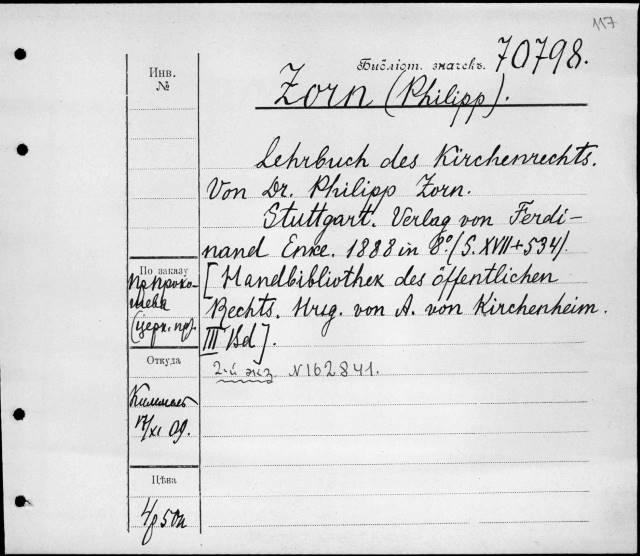 117
Библіот. значекъ. 70798.
Инв.
№
Zorn (Philipp).
Lehrbuch des Kirchenrechts.
Von Dr. Philipp Zorn.
Stuttgart. Verlag von Ferdi-
nand Enke. 1888 in 8º. (S. XVII+534).
[Handbibliothek des öffentlichen
Rechts. Hrsg. von A. von Kirchenheim.
III Bd].
2-й экз. N162841.
По заказу
Пр. Проко-
шева
(церк. пр).
Откуда
Киммель
17/XI 09.
Цѣна
4р 50к